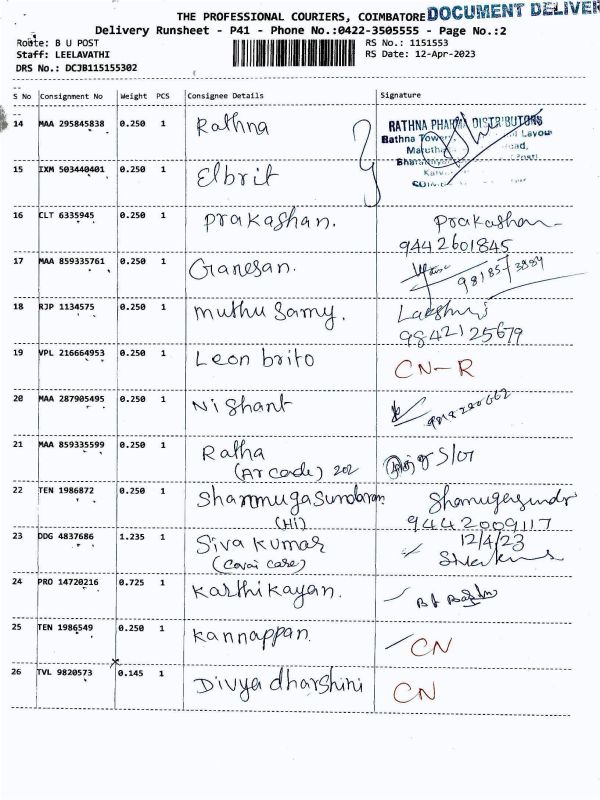 THE PROFESSIONAL COURIERS, COIMBATORE DOCUMENT DELIVER
Delivery Runsheet - P41 - Phone No.:0422-3505555 - Page No.:2
Route: B U POST
Staff: LEELAVATHI
DRS No.: DCJB115155302
RS No.: 1151553
RS Date: 12-Apr-2023
S No Consignment No Weight PCS Consignee Details Signature
14 MAA 295845838 0.250 1 Rathna
RATHNA PHARMA DISTRIBUTORS
Rathna Tower Layout
15 IXM 503440401 0.250 1 Elbrit
16 CLT 6335945 0.250 1 Prakashan. Prakashan
9442601845
17 MAA 859335761 0.250 1 Ganesan.
18 RJP 1134575 0.250 1 muthu Samy. Lakshmi
9842125679
19 VPL 216664953 0.250 1 Leon brito CN-R
20 MAA 287905495 0.250 1 Nishant
21 MAA 859335599 0.250 1 Ratha
(Arcade) 202
22 TEN 1986872 0.250 1 Shanmugasundaram
(Hi)
9442009117
23 DDG 4837686 1.235 1 Siva Kumar 12/4/23
(Covai care)
24 PRO 14720216 0.725 1 Karthikayan.
25 TEN 1986549 0.250 1 Kannappan. CN
26 TVL 9820573 0.145 1 Divya dharshini CN